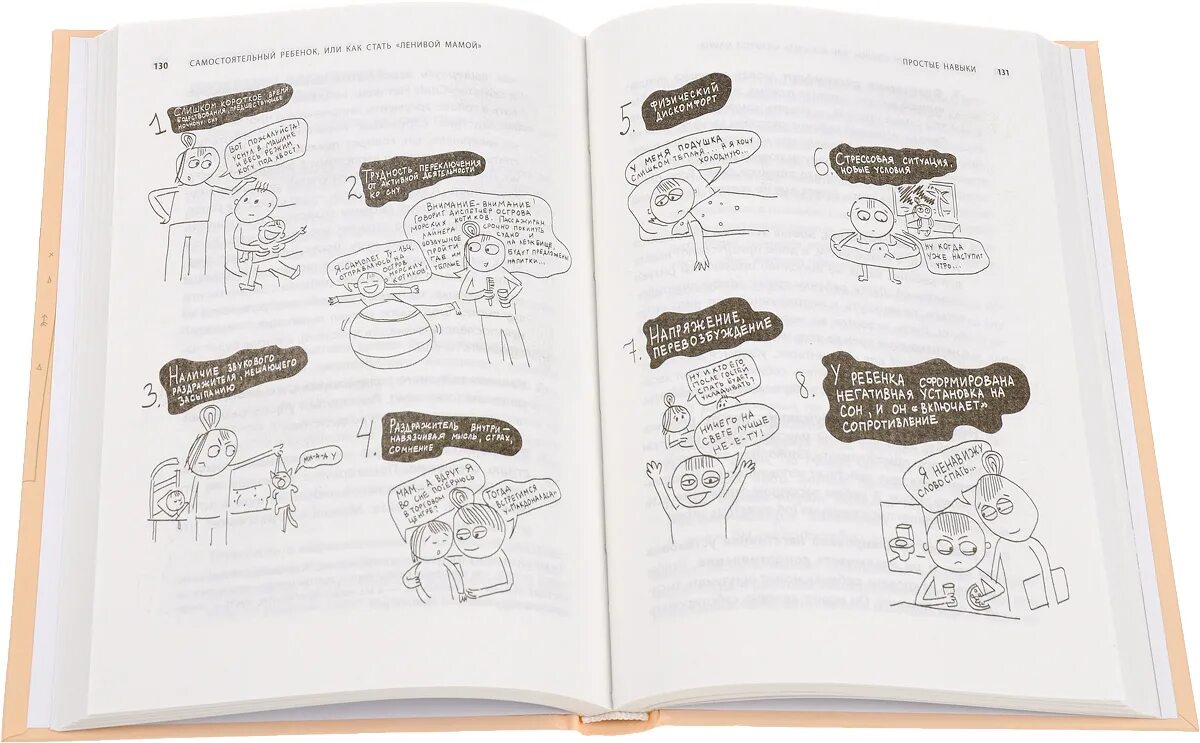 130 САМОСТОЯТЕЛЬНЫЙ РЕБЕНОК, ИЛИ КАК СТАТЬ «ЛЕНИВОЙ МАМОЙ»
1 СЛИШКОМ КОРОТКОЕ ВРЕМЯ
БОДРСТВОВАНИЯ, ПРЕДШЕСТВУЮЩЕЕ
НОЧНОМУ СНУ
ВОТ ПОЖАЛУЙСТА!
УСНУЛ В МАШИНЕ
И ВЕСЬ РЕЖИМ
КОТУ ПОД ХВОСТ!
2. ТРУДНОСТЬ ПЕРЕКЛЮЧЕНИЯ
ОТ АКТИВНОЙ ДЕЯТЕЛЬНОСТИ
КО СНУ
Я-САМОЛЕТ ТУ-154,
ОТПРАВЛЯЮСЬ НА
ОСТРОВ
МОРСКИХ
КОТИКОВ!
ВНИМАНИЕ-ВНИМАНИЕ!
ГОВОРИТ ДИСПЕТЧЕР ОСТРОВА
МОРСКИХ КОТИКОВ. ПАССАЖИРАМ
ЛАЙНЕРА СРОЧНО ПОКИНУТЬ
ВОЗДУШНОЕ СУДНО И
ПРОЙТИ НА ЛЕЖБИЩЕ,
ГДЕ ИМ БУДУТ ПРЕДЛОЖЕНЫ
ТЕПЛЫЕ НАПИТКИ...
3. НАЛИЧИЕ ЗВУКОВОГО
РАЗДРАЖИТЕЛЯ, МЕШАЮЩЕГО
ЗАСЫПАНИЮ
МЯ-А-А-У
4. РАЗДРАЖИТЕЛЬ ВНУТРИ-
НАВЯЗЧИВАЯ МЫСЛЬ, СТРАХ,
СОМНЕНИЕ
МАМ... А ВДРУГ Я
ВО СНЕ ПОТЕРЯЮСЬ
В ТОРГОВОМ
ЦЕНТРЕ?
ТОГДА
ВСТРЕТИМСЯ
У «МАКДОНАЛДСА»
ПРОСТЫЕ НАВЫКИ 131
5. ФИЗИЧЕСКИЙ
ДИСКОМФОРТ
У МЕНЯ ПОДУШКА
СЛИШКОМ ТЕПЛАЯ... А Я ХОЧУ
ХОЛОДНУЮ...
6. СТРЕССОВАЯ СИТУАЦИЯ,
НОВЫЕ УСЛОВИЯ
НУ КОГДА
УЖЕ НАСТУПИТ
УТРО...
7. НАПРЯЖЕНИЕ,
ПЕРЕВОЗБУЖДЕНИЕ
НУ И КТО ЕГО
ПОСЛЕ ГОСТЕЙ
СПАТЬ БУДЕТ
УКЛАДЫВАТЬ?
НИЧЕГО НА
СВЕТЕ ЛУЧШЕ
НЕ-Е-ТУ!
8. У РЕБЕНКА СФОРМИРОВАНА
НЕГАТИВНАЯ УСТАНОВКА НА
СОН, И ОН «ВКЛЮЧАЕТ»
СОПРОТИВЛЕНИЕ
Я НЕНАВИЖУ
СЛОВО СПАТЬ...